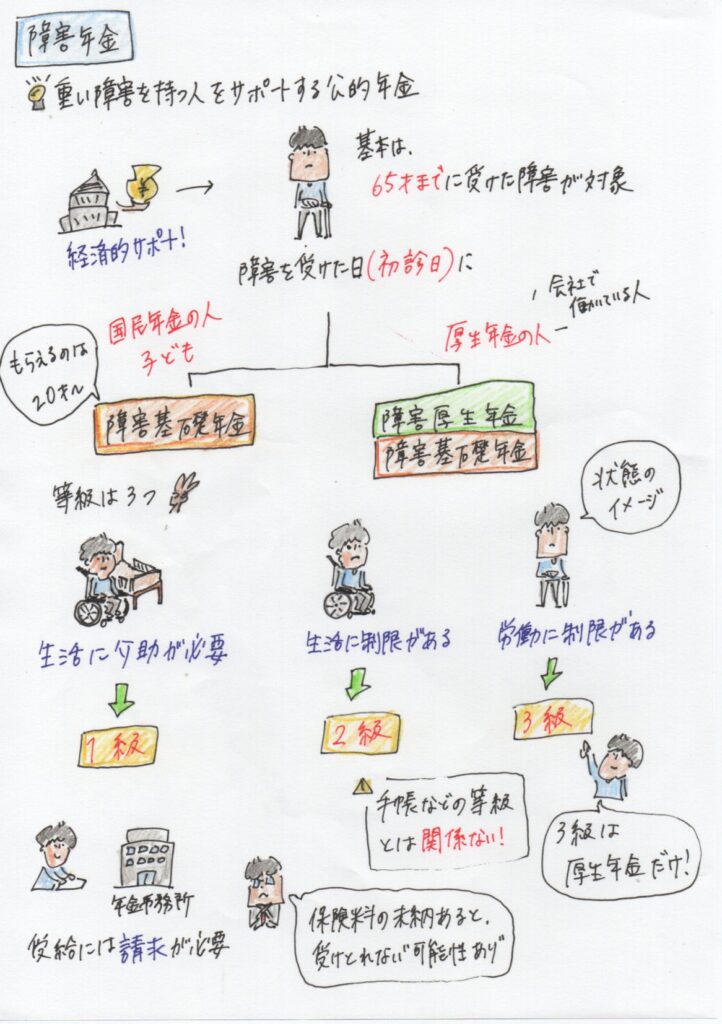 障害年金
重い障害を持つ人をサポートする公的年金
基本は、
65才までに受けた障害が対象
¥
経済的サポート!
障害を受けた日(初診日)に
国民年金の人
子ども
厚生年金の人
会社で
働いている人
もらえるのは
20才ル
障害基礎年金
障害厚生年金
障害基礎年金
等級は3つ
状態の
イメージ
生活に介助が必要
生活に制限がある
労働に制限がある
1級
2級
3級
手帳などの等級
とは関係ない!
3級は
厚生年金だけ!
年金事務所
受給には請求が必要
保険料の未納あると、
受けとれない可能性あり